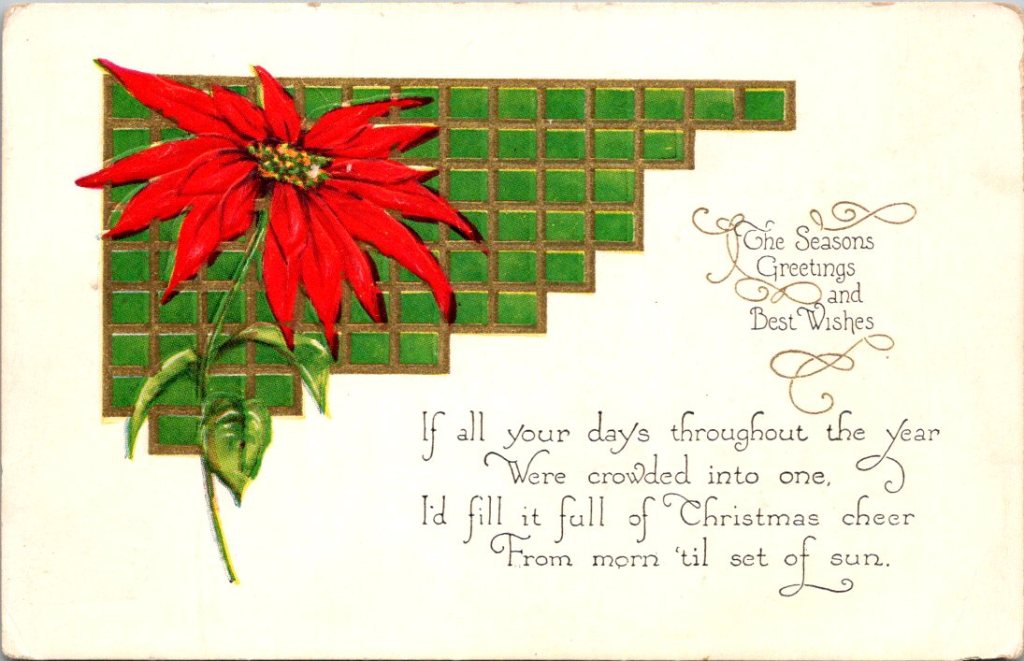 The Seasons
Greetings
and
Best Wishes
If all your days throughout the year
Were crowded into one,
I'd fill it full of Christmas cheer
From morn 'til set of sun.